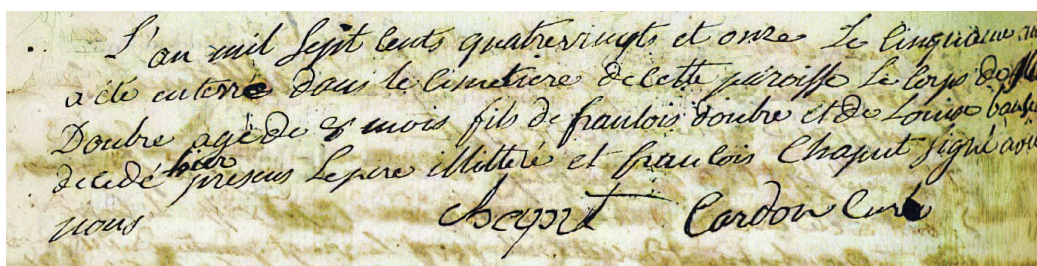 L'an mil sept cents quatrevingts et onze Le Cinquieme
a été enterré dans le cimetiere de cette paroisse Le Corps de
Doubre agé de 8 mois fils de francois doubre et de Louise
decedé hier presens Le pere illitteré et francois Chaput signé avec
nous Chaput Cardon Curé